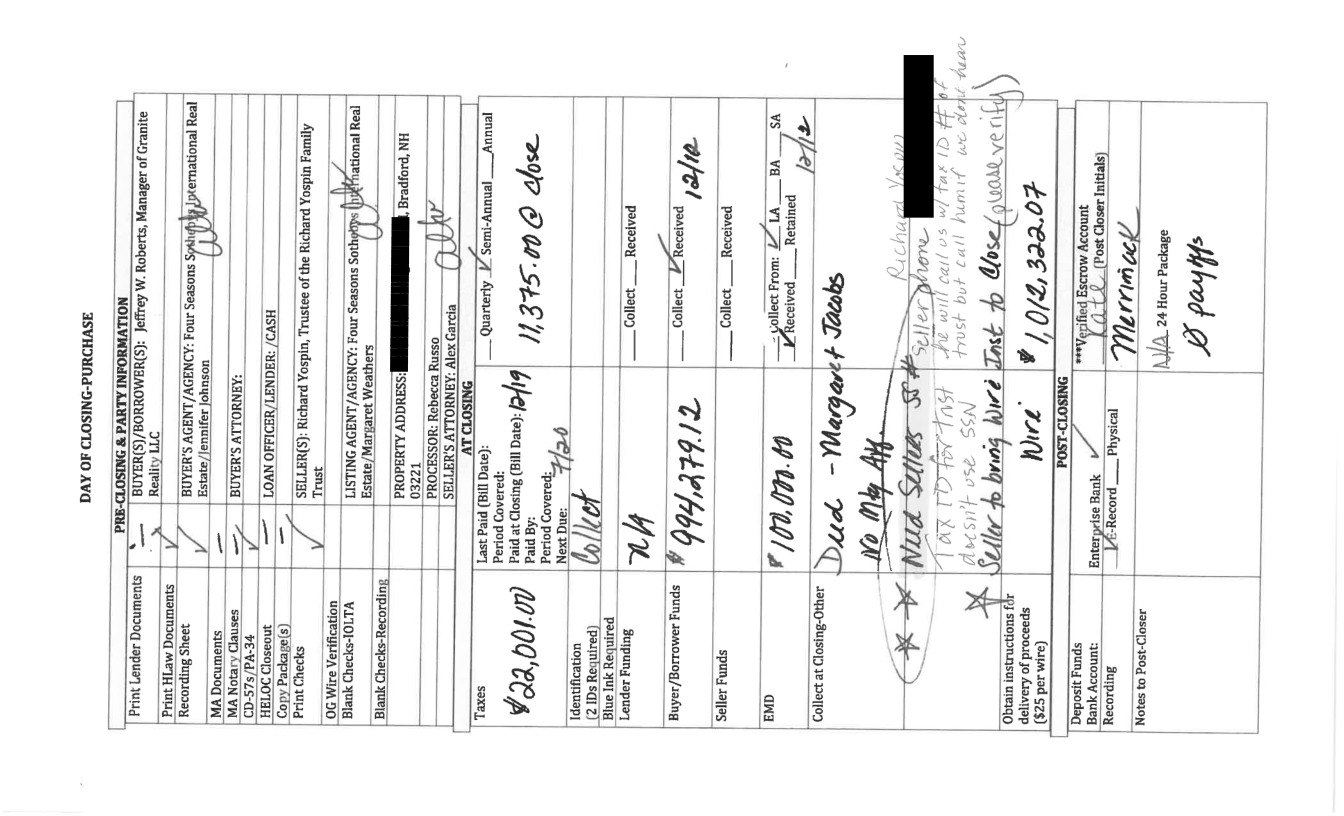 DAY OF CLOSING-PURCHASE
PRE-CLOSING & PARTY INFORMATION
Print Lender Documents – BUYER(S)/BORROWER(S): Jeffrey W. Roberts, Manager of Granite
Reality LLC
Print HLaw Documents ✓
Recording Sheet ✓ BUYER'S AGENT/AGENCY: Four Seasons Sothebys International Real
Estate/Jennifer Johnson
MA Documents –
MA Notary Clauses – BUYER'S ATTORNEY:
CD-57s/PA-34 ✓
HELOC Closeout – LOAN OFFICER/LENDER: /CASH
Copy Package(s) –
Print Checks ✓ SELLER(S): Richard Yospin, Trustee of the Richard Yospin Family
Trust
OG Wire Verification
Blank Checks-IOLTA LISTING AGENT/AGENCY: Four Seasons Sothebys International Real
Estate/Margaret Weathers
Blank Checks-Recording
PROPERTY ADDRESS: , Bradford, NH
03221
PROCESSOR: Rebecca Russo
SELLER'S ATTORNEY: Alex Garcia
AT CLOSING
Taxes
$22,001.00
Last Paid (Bill Date):
Period Covered:
Paid at Closing (Bill Date): 12/19
Paid By:
Period Covered:
Next Due: 7/20
__ Quarterly ✓ Semi-Annual __ Annual
11,375.00 @ close
Identification
(2 IDs Required)
Collect
Blue Ink Required
Lender Funding N/A __ Collect __ Received
Buyer/Borrower Funds $994,279.12 __ Collect ✓ Received 12/12
Seller Funds __ Collect __ Received
EMD $100,000.00 __ Collect From: ✓ LA __ BA __ SA
✓ Received __ Retained 12/12
Collect at Closing-Other
Deed - Margaret Jacobs
No Mtg Aff.
Need Sellers SS# seller phone Richard Yospin
Tax ID for trust
doesn't use SSN
he will call us w/ tax ID # of
trust but call him if we done hear
Seller to bring Wire Inst to Close (please verify)
Obtain instructions for
delivery of proceeds
($25 per wire)
Wire $1,012,322.07
POST-CLOSING
Deposit Funds
Bank Account:
Enterprise Bank ✓
***Verified Escrow Account
Kate (Post Closer Initials)
Recording ✓ E-Record __ Physical Merrimack
Notes to Post-Closer
N/A 24 Hour Package
Ø payoffs